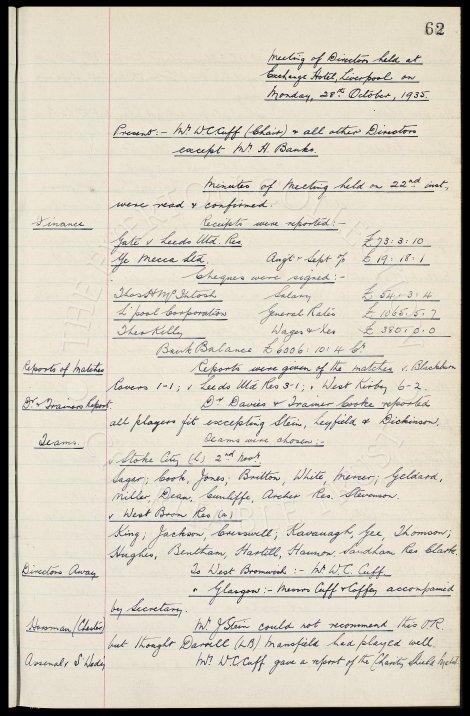 62
Meeting of Directors held at
Exchange Hotel, Liverpool on
Monday, 28th October, 1935.
Present:- Mr. W.C. Cuff (Chair) & all other Directors
except Mr. H. Banks.
Minutes of Meeting held on 22nd inst,
were read & confirmed.
Finance
Receipts were reported:-
Gate v Leeds Utd. Res £73: 3: 10
Ye Mecca Ltd. Augt & Sept % £19: 18: 1
Cheques were signed:-
Thos H McIntosh Salary £54: 3: 4
L'pool Corporation General Rates £1065: 5: 7
Theo Kelly Wages & Xes £380: 0: 0
Bank Balance £6006: 10: 4 Cr.
Reports of Matches
Reports were given of the matches v. Blackburn
Rovers 1-1; v Leeds Utd Res 3-1; v West Kirby 6-2.
Dr. & Trainers Report
Dr. Davies & Trainer Cooke reported
all players fit excepting Stein, Leyfield & Dickinson.
Teams.
Teams were chosen:-
v. Stoke City (L) 2nd Novr.
Sagar; Cook, Jones; Britton, White, Mercer; Geldard,
Miller, Dean, Cunliffe, Archer Res. Stevenson.
v West Brom Res (a)
King; Jackson, Cresswell; Kavanagh, Gee, Thomson;
Hughes, Bentham, Hartill, Hannon, Sandham Res Clarke.
Directors Away
To West Bromwich:- Mr. W.C. Cuff
" Glasgow:- Messrs Cuff & Coffey accompanied
by Secretary.
Horsman (Chester)
Mr. J. Stein could not recommend this O.R.
but thought Darvill (LB) Mansfield had played well.
Arsenal v S Wedy
Mr. W.C. Cuff gave a report of the Charity Shield Match